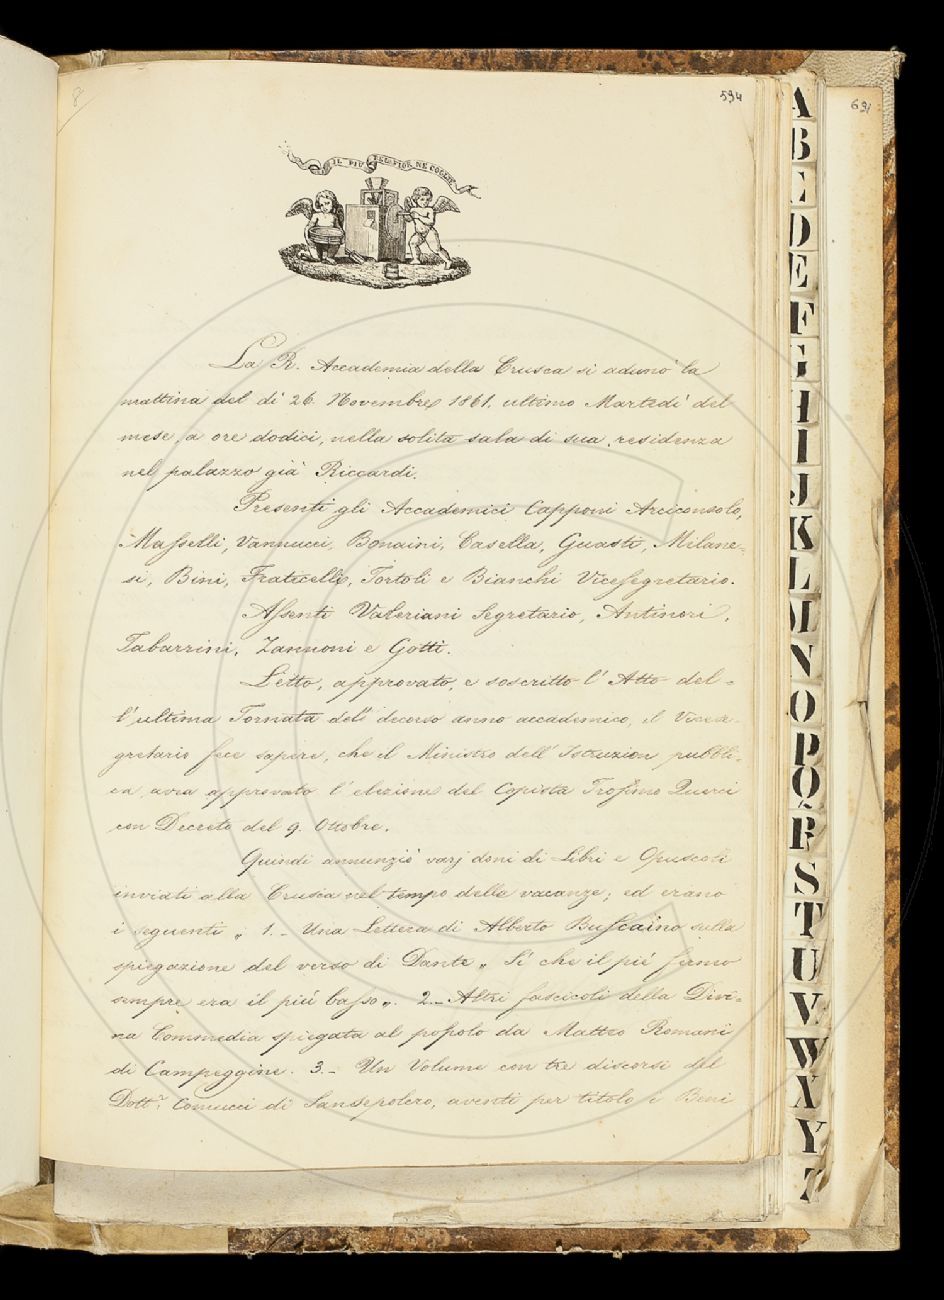 8
594
691
IL PIÙ BEL FIOR NE COGLIE
La R. Accademia della Crusca si adunò la
mattina del dì 26. Novembre 1861. ultimo Martedì del
mese, a ore dodici, nella solita sala di sua residenza
nel palazzo già Riccardi.
Presenti gli Accademici Capponi Arciconsolo,
Masselli, Vannucci, Bonaini, Casella, Guasti, Milane=
si, Bini, Fraticelli, Tortoli e Bianchi Vicesegretario.
Assenti Valeriani Segretario, Antinori,
Tabarrini, Zannoni e Gotti.
Letto, approvato, e soscritto l'Atto del=
l'ultima Tornata dell'decorso anno accademico, il Vicese=
gretario fece sapere, che il Ministro dell'Istruzion pubbli=
ca, avea approvato l'elezione del Copista Trofimo Querci
con Decreto del 9. Ottobre.
Quindi annunziò varj doni di Libri e Opuscoli
inviati alla Crusca nel tempo delle vacanze; ed erano
i seguenti „ 1.- Una Lettera di Alberto Buscaino sulla
spiegazione del verso di Dante „ Sì che il piè fermo
sempre era il più basso„. 2.- Altri fascicoli della Divi=
na Commedia spiegata al popolo da Matteo Romani
di Campeggine. 3.- Un Volume con tre discorsi del
Dott.r Comucci di Sansepolcro, aventi per titolo i Beni
A
B
C
D
E
F
G
H
I
J
K
L
M
N
O
P
Q
R
S
T
U
V
W
X
Y
Z